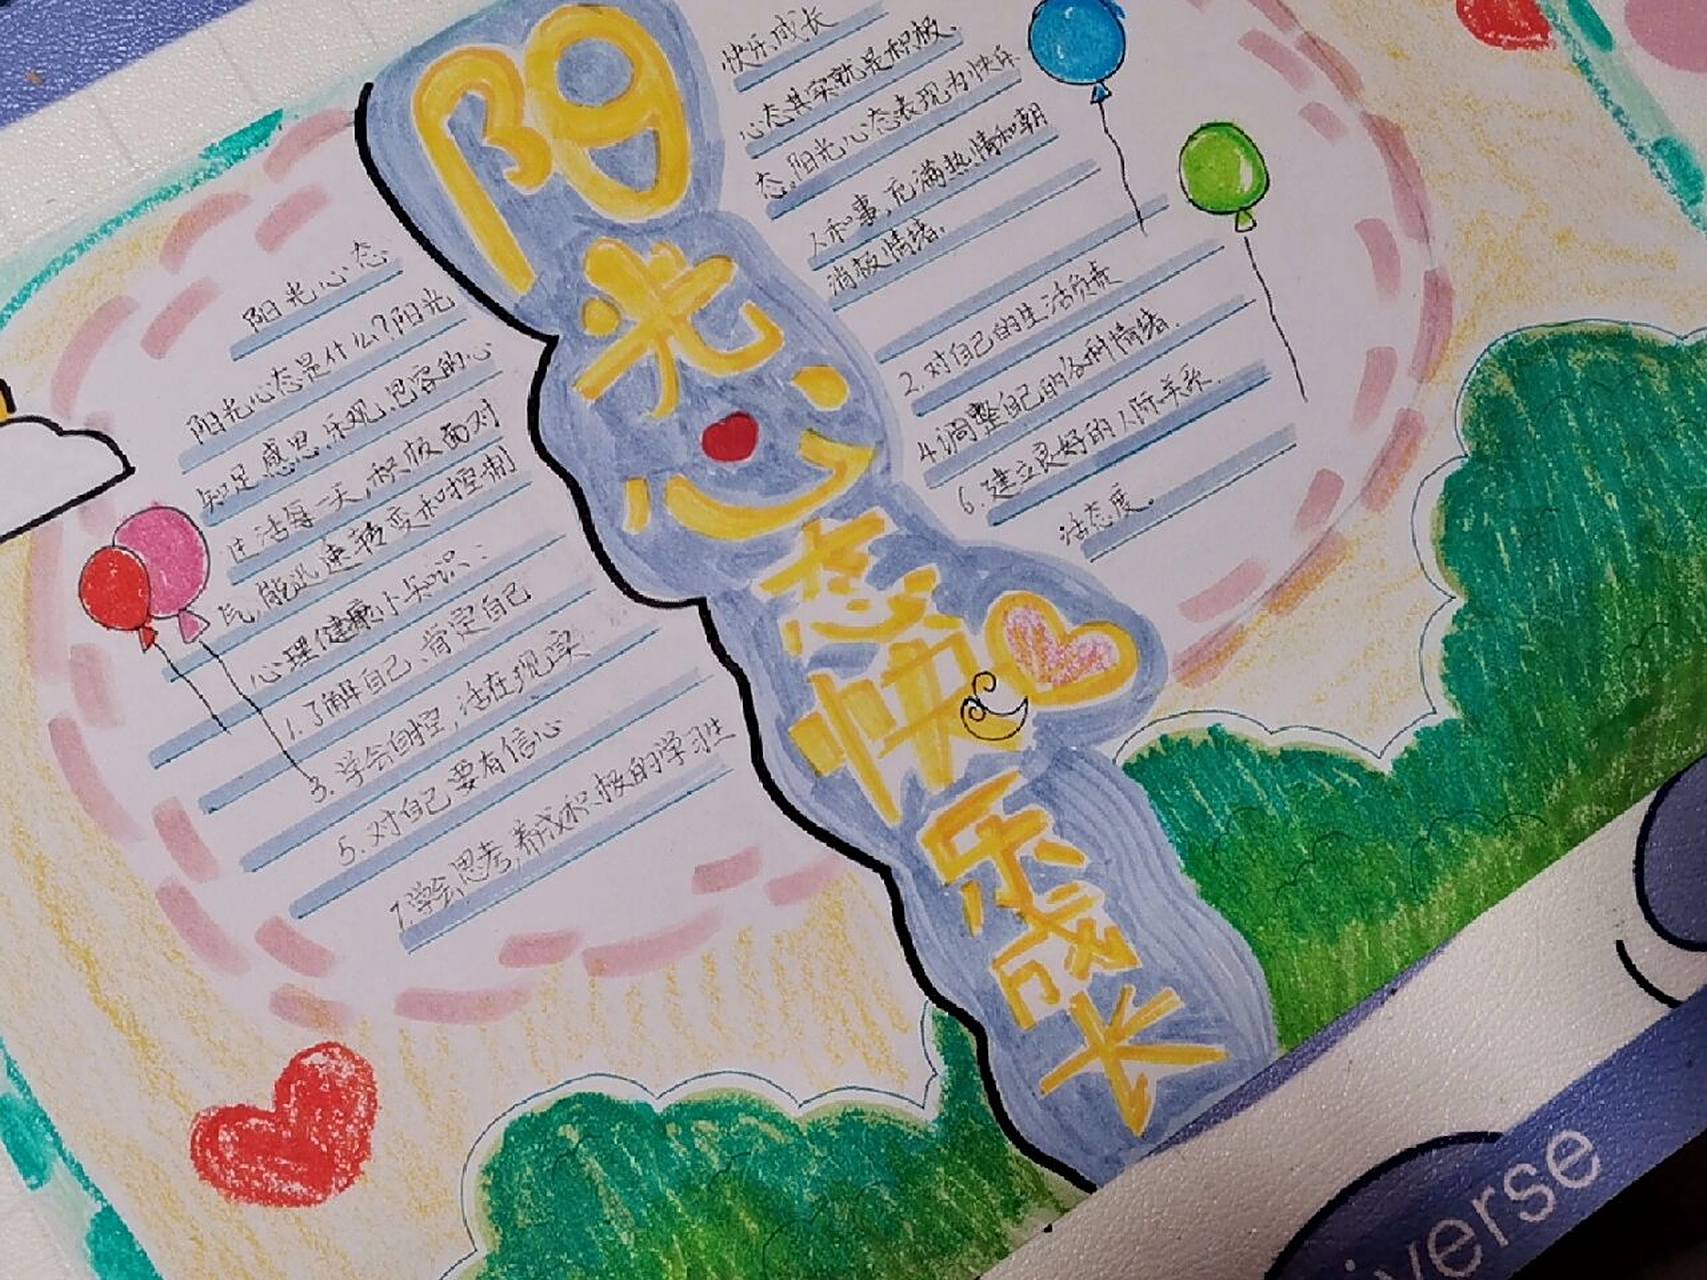 阳光心态快乐成长
阳光心态
快乐成长
阳光心态是什么?阳光
心态其实就是积极、
知足、感恩、乐观、包容的心
态,阳光心态表现为快乐
生活每一天,积极面对
人和事,充满热情和朝
气,能迅速转变和控制
消极情绪。
心理健康小知识:
1.了解自己、肯定自己
2.对自己的生活负责
3.学会自控,活在现实
4.调整自己的各种情绪.
5.对自己要有信心
6.建立良好的人际关系.
7.学会思考,养成积极的学习生
活态度。
iverse